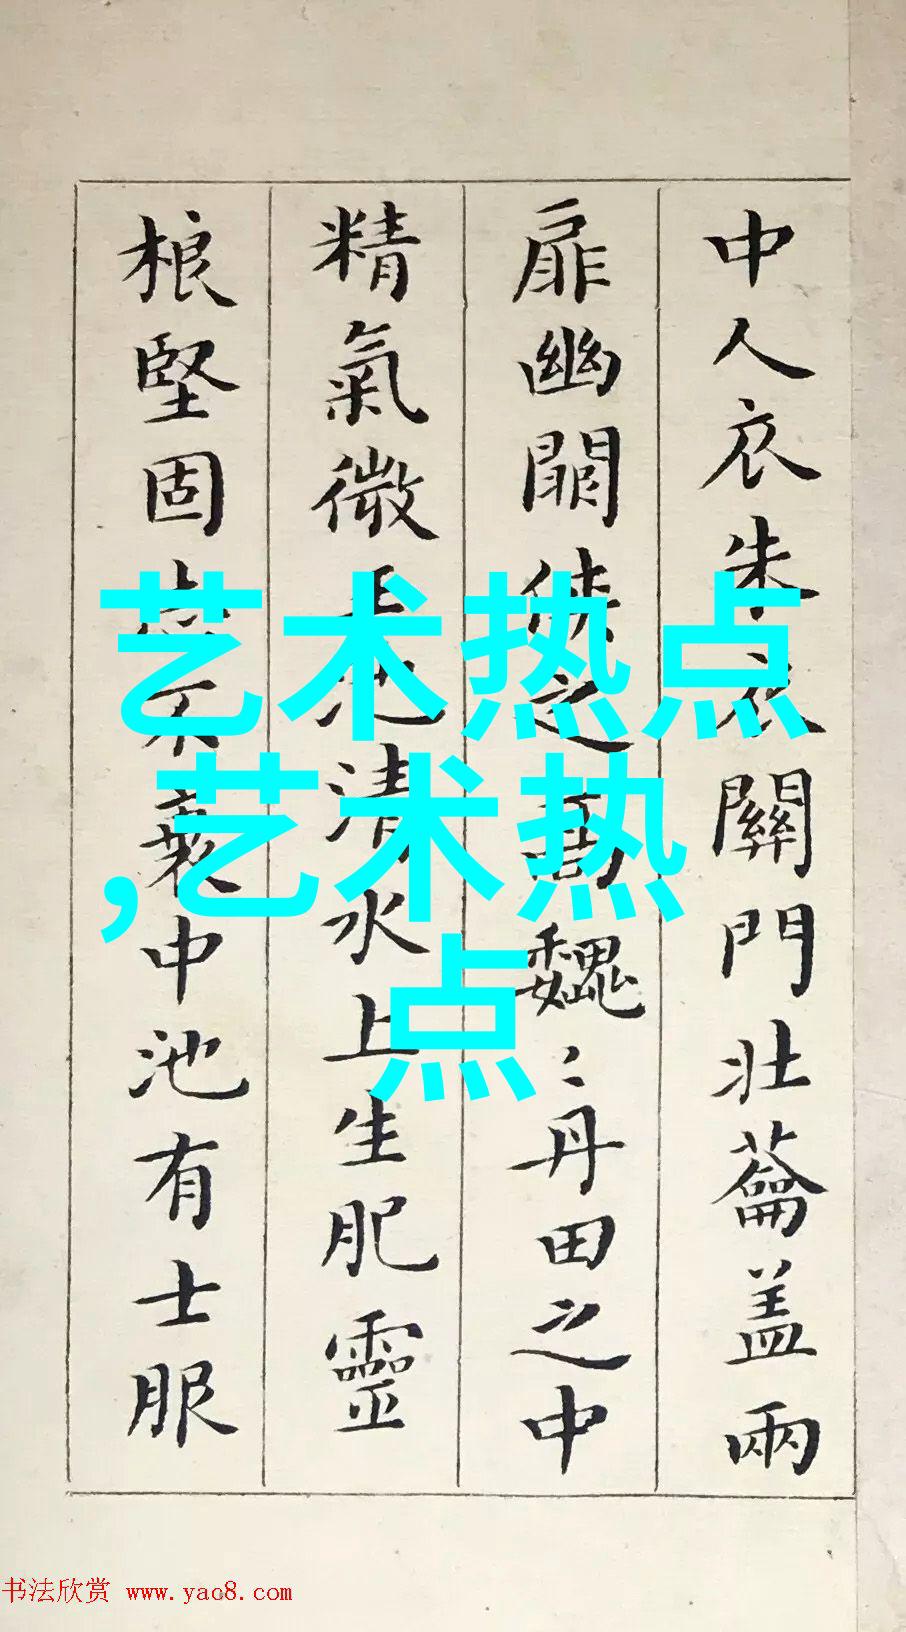 中人衣朱衣關門壯蘥盖兩
扉幽闕俠之高魏〻丹田之中
精氣微玉池清水上生肥靈
根堅固志不衰中池有士服
艺术热点
,艺术热
点
书法欣赏 www.yac8.com